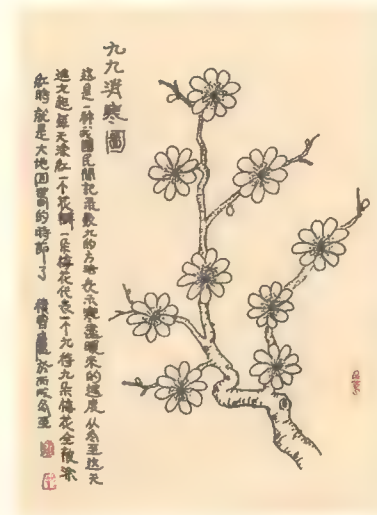 九九消寒圖
這是一種我國民間記最數九的方法表示寒盡暖來的進度从冬至这天
進九起每天塗红一个花瓣一朵梅花代表一个九待九朵梅花全被涂
红時就是大地回春的時節了